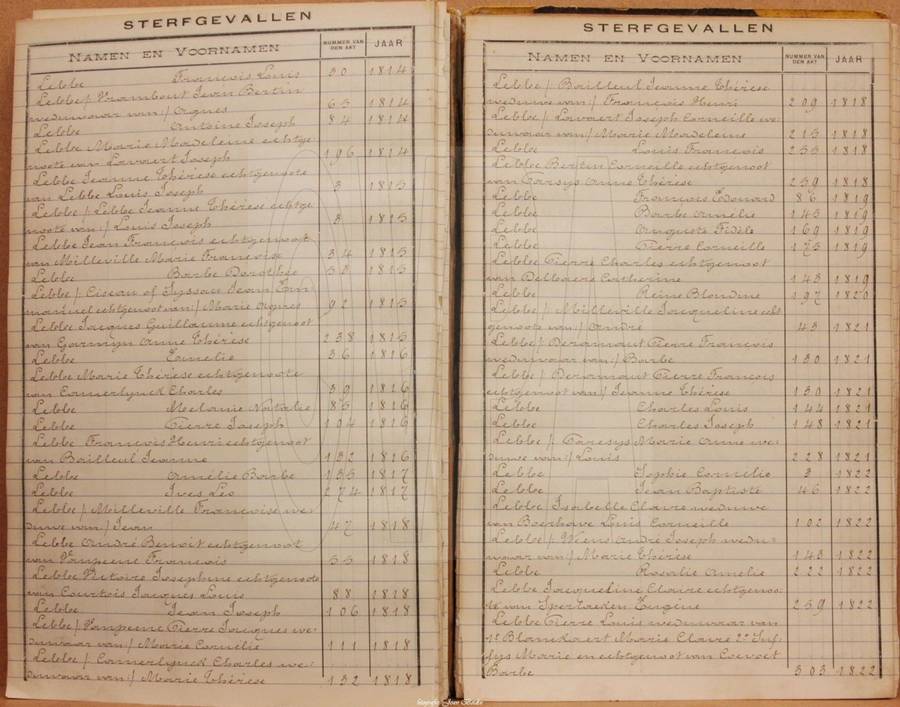 STERFGEVALLEN
NAMEN EN VOORNAMEN NUMMER VAN DEN AKT JAAR
Lebbe François Louis 30 1814
Lebbe / Vrambout Jean Bertin
weduwaar van / Agnes 65 1814
Lebbe Antoine Joseph 84 1814
Lebbe Marie Madeleine echtge
noote van Lavaert Joseph 196 1814
Lebbe Jeanne Thérèse echtgenoote
van Lebbe Louis Joseph 3 1815
Lebbe / Lebbe Jeanne Thérèse echtge
noote van / Louis Joseph 3 1815
Lebbe Jean François echtgenoot
van Milleville Marie Françoise 34 1815
Lebbe Barbe Dorothée 50 1815
Lebbe / of Jean Em
manuel echtgenoot van / Marie Agnes 92 1815
Lebbe Jacques Guillaume echtgenoot
van Garmijn Anne Thérèse 238 1815
Lebbe Emelie 36 1816
Lebbe Marie Thérèse echtgenoote
van Connerlynck Charles 39 1816
Lebbe Melanie Natalie 85 1816
Lebbe Pierre Joseph 104 1816
Lebbe François Henri echtgenoot
van Bailleul Jeanne 132 1816
Lebbe Amélie Barbe 135 1817
Lebbe Ives Leo 274 1817
Lebbe / Milleville Françoise we-
duwe van / Jean 47 1818
Lebbe André Benoit echtgenoot
van François 55 1818
Lebbe Victoire Josephine echtgenoote
van Courtois Jacques Louis 88 1818
Lebbe Jean Joseph 106 1818
Lebbe / Pierre Jacques we-
duwaar van / Marie Cornelie 111 1818
Lebbe / Connerlynck Charles we-
duwaar van / Marie Thérèse 132 1818
STERFGEVALLEN
NAMEN EN VOORNAMEN NUMMER VAN DEN AKT JAAR
Lebbe / Bailleul Jeanne Thérèse
weduwe van / François Henri 209 1818
Lebbe / Lavaert Joseph Corneille we-
duwaar van / Marie Madeleine 215 1818
Lebbe Louis François 255 1818
Lebbe Bertin Corneille echtgenoot
van Anne Thérèse 259 1818
Lebbe François Edouard 86 1819
Lebbe Barbe Amelie 145 1819
Lebbe Auguste Fidèle 169 1819
Lebbe Pierre Corneille 175 1819
Lebbe Pierre Charles echtgenoot
van Delbaere Catherine 143 1819
Lebbe Reine Blondine 197 1820
Lebbe / Milleville Jacqueline echt
genoote van / André 43 1821
Lebbe / Deramaut Pierre François
weduwaar van / Barbe 130 1821
Lebbe / Deramaut Pierre François
echtgenoot van / Jeanne Thérèse 130 1821
Lebbe Charles Louis 144 1821
Lebbe Charles Joseph 148 1821
Lebbe / Marie Anne we-
duwe van / Louis 228 1821
Lebbe Sophie Cornelie 3 1822
Lebbe Jean Baptiste 46 1822
Lebbe Isabelle Claire weduwe
van Boerhave Louis Corneille 102 1822
Lebbe / André Joseph wedu-
waar van / Marie Thérèse 143 1822
Lebbe Rosalie Amelie 222 1822
Lebbe Jacqueline Claire echtgenoo-
te van Eugène 259 1822
Lebbe Pierre Louis weduwaar van
1e Blanckaert Marie Claire 2e
Marie en echtgenoot van Coevoet
Barbe 303 1822